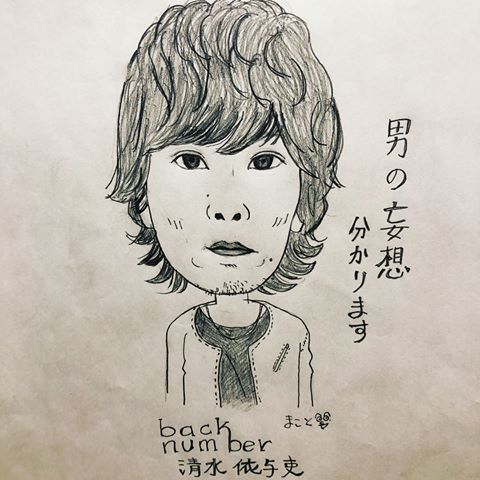 男の妄想
分かります
まこと
back
number
清水 依与吏